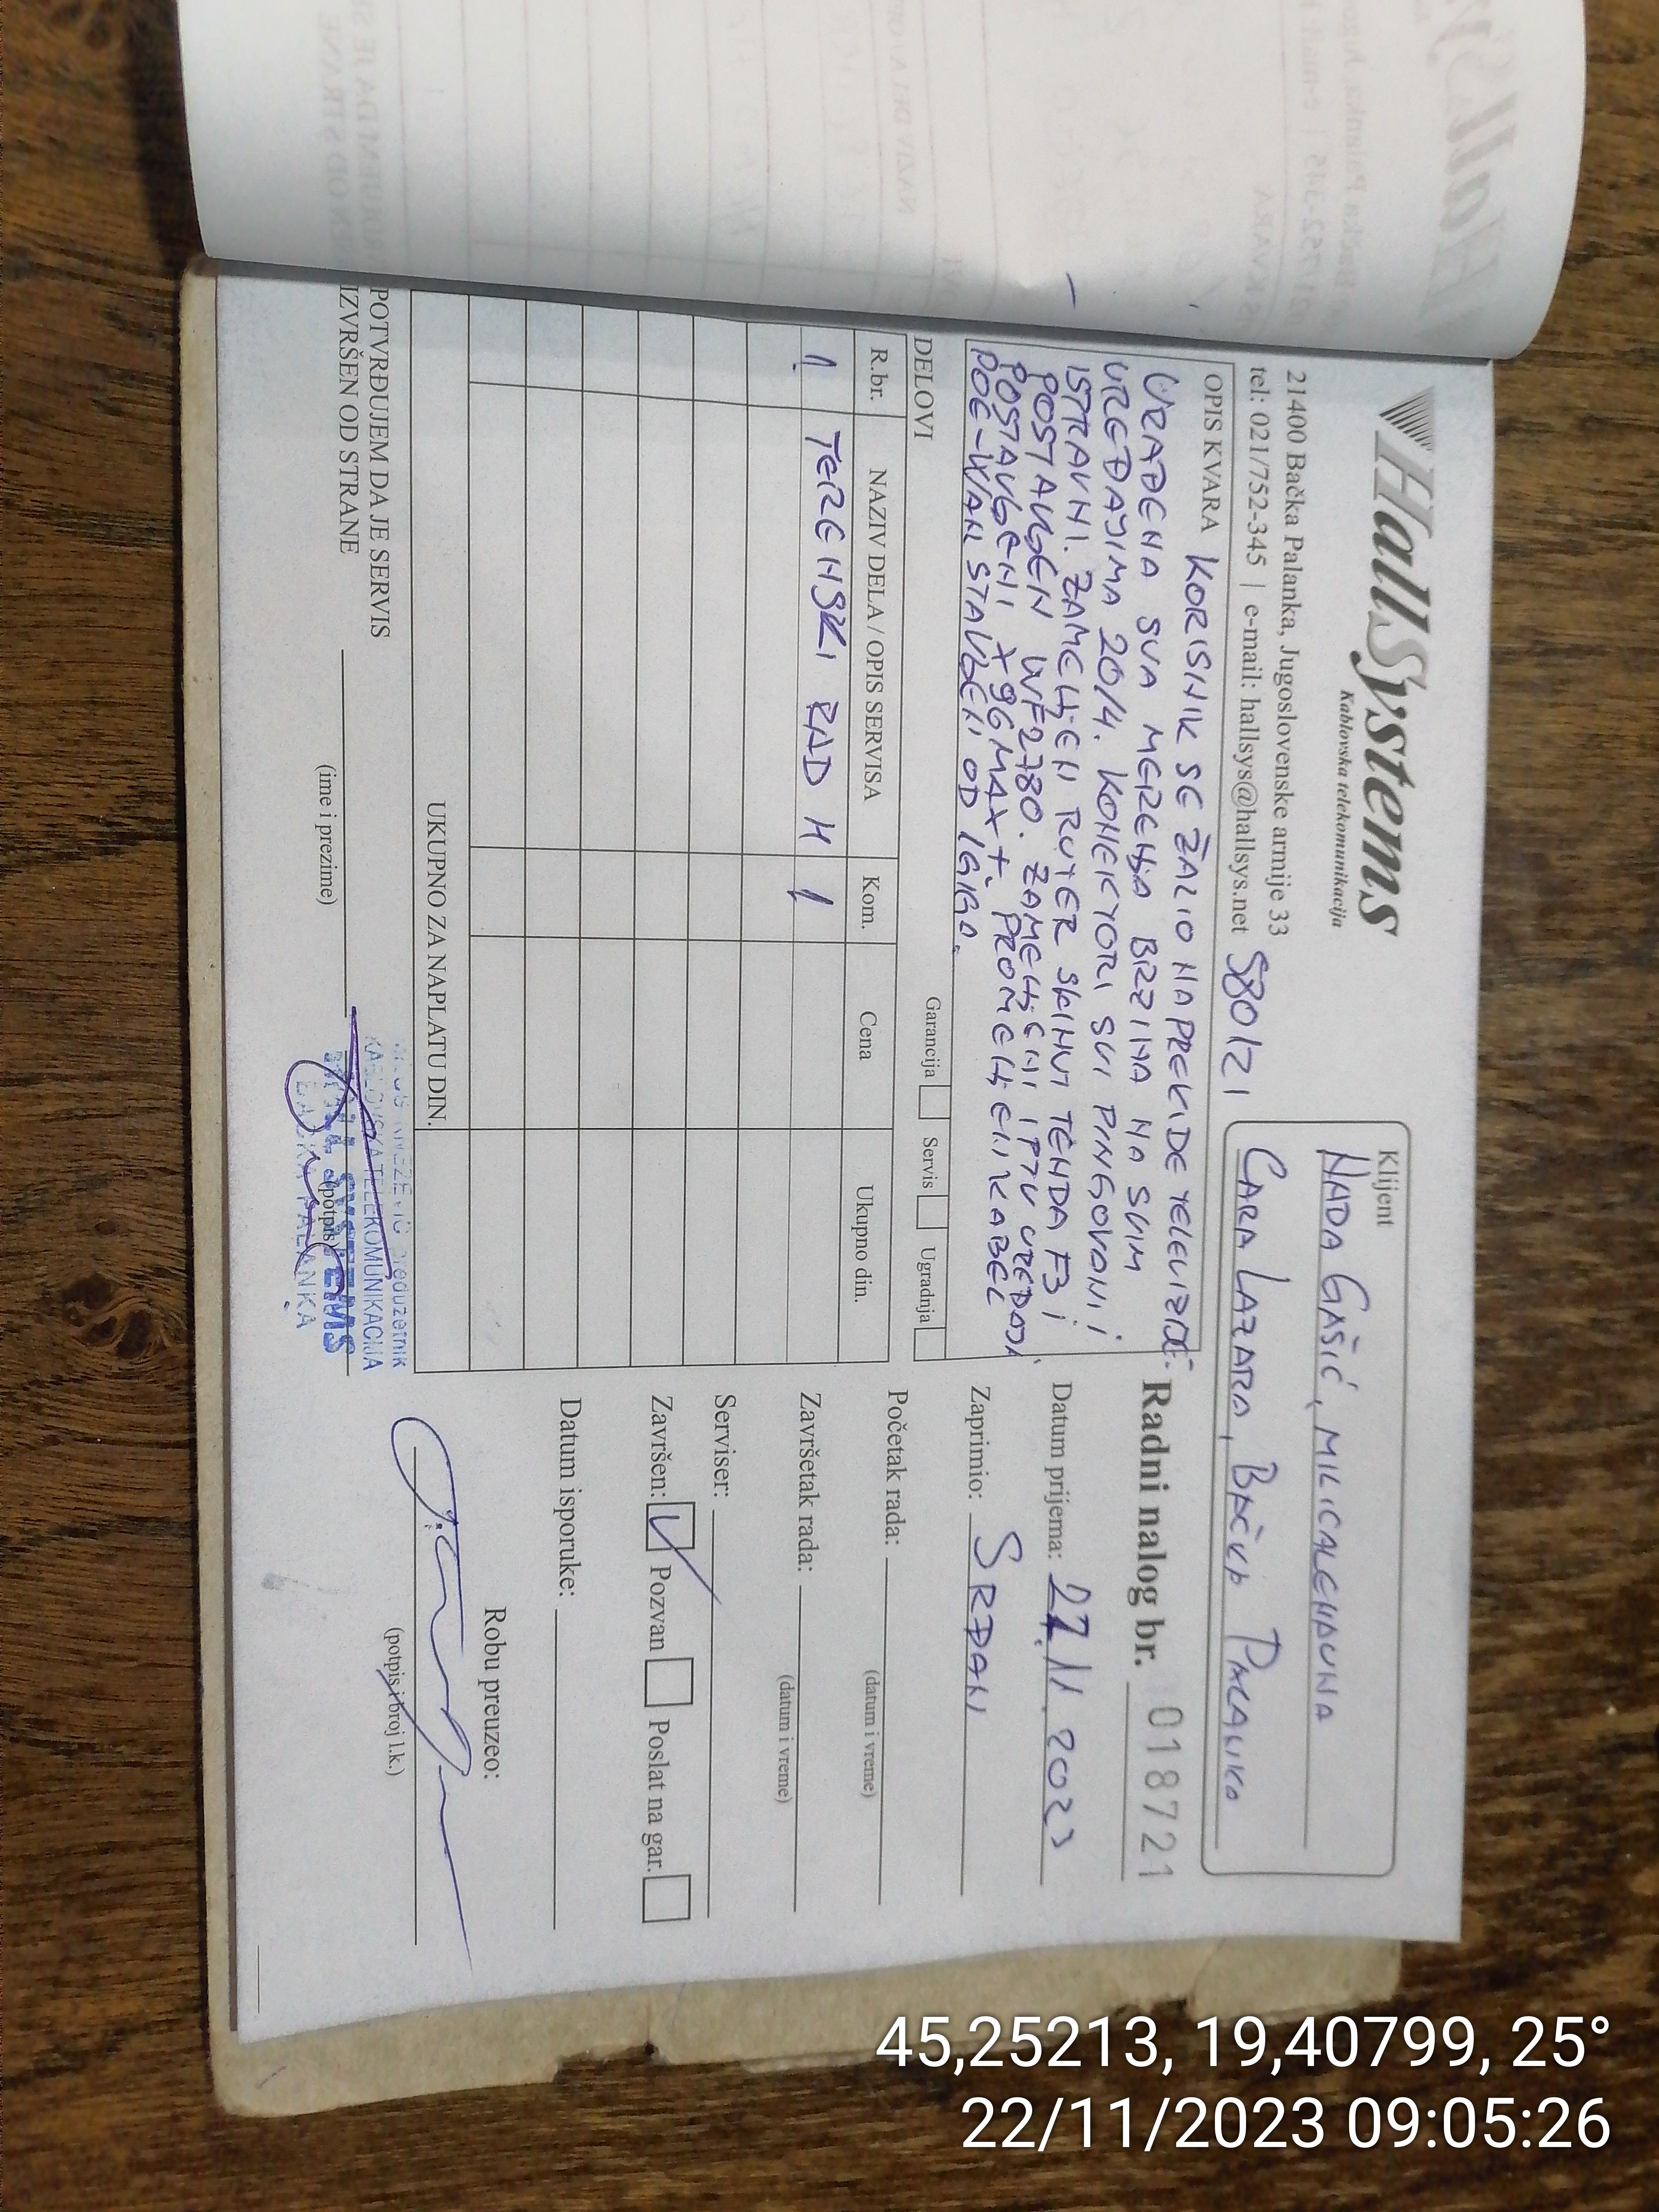 HallSystems
Kablovska telekomunikacija
21400 Bačka Palanka, Jugoslovenske armije 33
tel: 021/752-345 | e-mail: hallsys@hallsys.net
580121
Klijent
NADA GAŠIĆ, MILICA
CARA LAZARA, BAČKA PALANKA
OPIS KVARA KORISNIK SE ŽALIO NA PREKIDE TELEVIZIJE.
URAĐENA SVA MERENJA BRZINA NA SVIM
UREĐAJIMA 20/4. KONEKTORI SVI PINGOVANI I
ISPRAVNI. ZAMENJEN RUTER SKINUT TENDA F3 I
POSTAVLJEN WF2780. ZAMENJENI IPTV UREĐAJI
POSTAVLJENI X96MAX+. PROMENJENI KABEL
POE-WAN STAVLJENI OD 1GIGA.
Radni nalog br. 018721
Datum prijema: 22.11.2023
Zaprimio: SRĐAN
Početak rada:
(datum i vreme)
Završetak rada:
(datum i vreme)
Serviser:
Završen: Pozvan Poslat na gar.
Datum isporuke:
Robu preuzeo:
(potpis i broj l.k.)
DELOVI
Garancija Servis Ugradnja
R.br. NAZIV DELA / OPIS SERVISA Kom. Cena Ukupno din.
1 TERENSKI RAD H 1
UKUPNO ZA NAPLATU DIN.
POTVRĐUJEM DA JE SERVIS
IZVRŠEN OD STRANE
(ime i prezime)
(potpis)
preduzetnik
KABLOVSKA TELEKOMUNIKACIJA
HALL SYSTEMS
BAČKA PALANKA
45,25213, 19,40799, 25°
22/11/2023 09:05:26